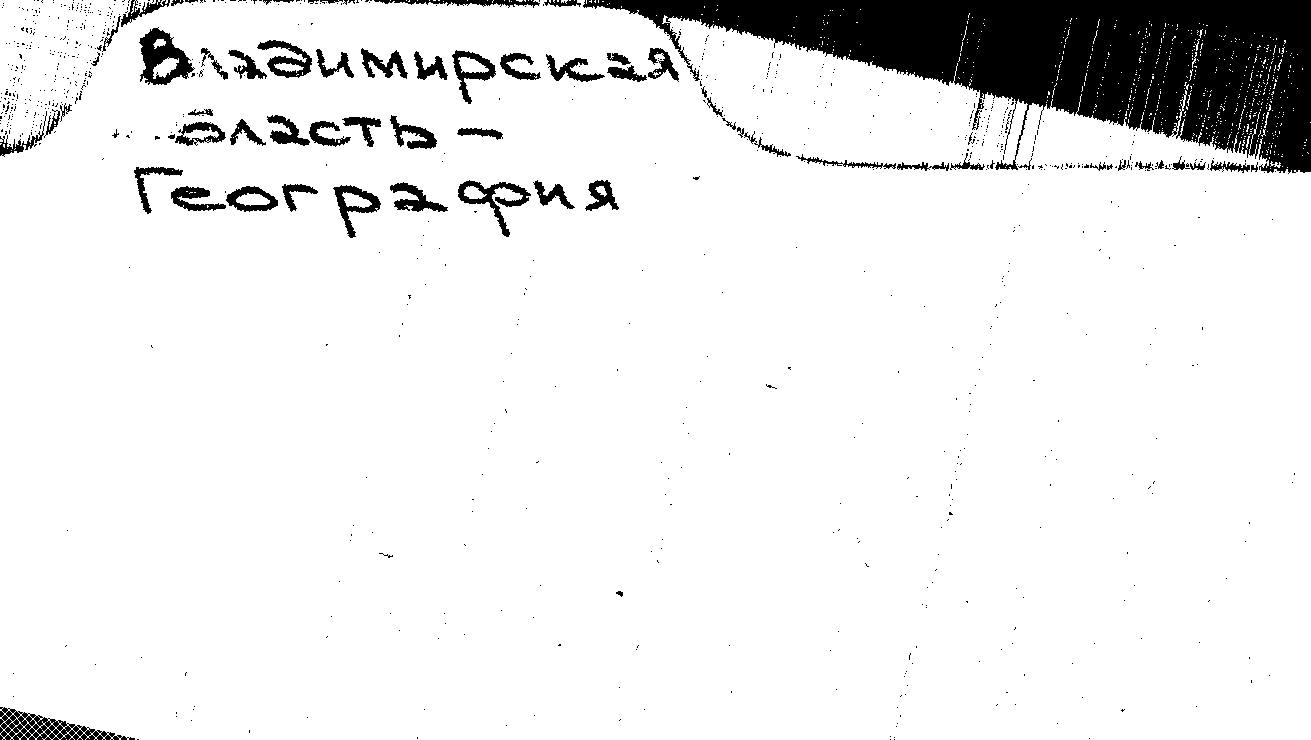 Владимирская
область –
География